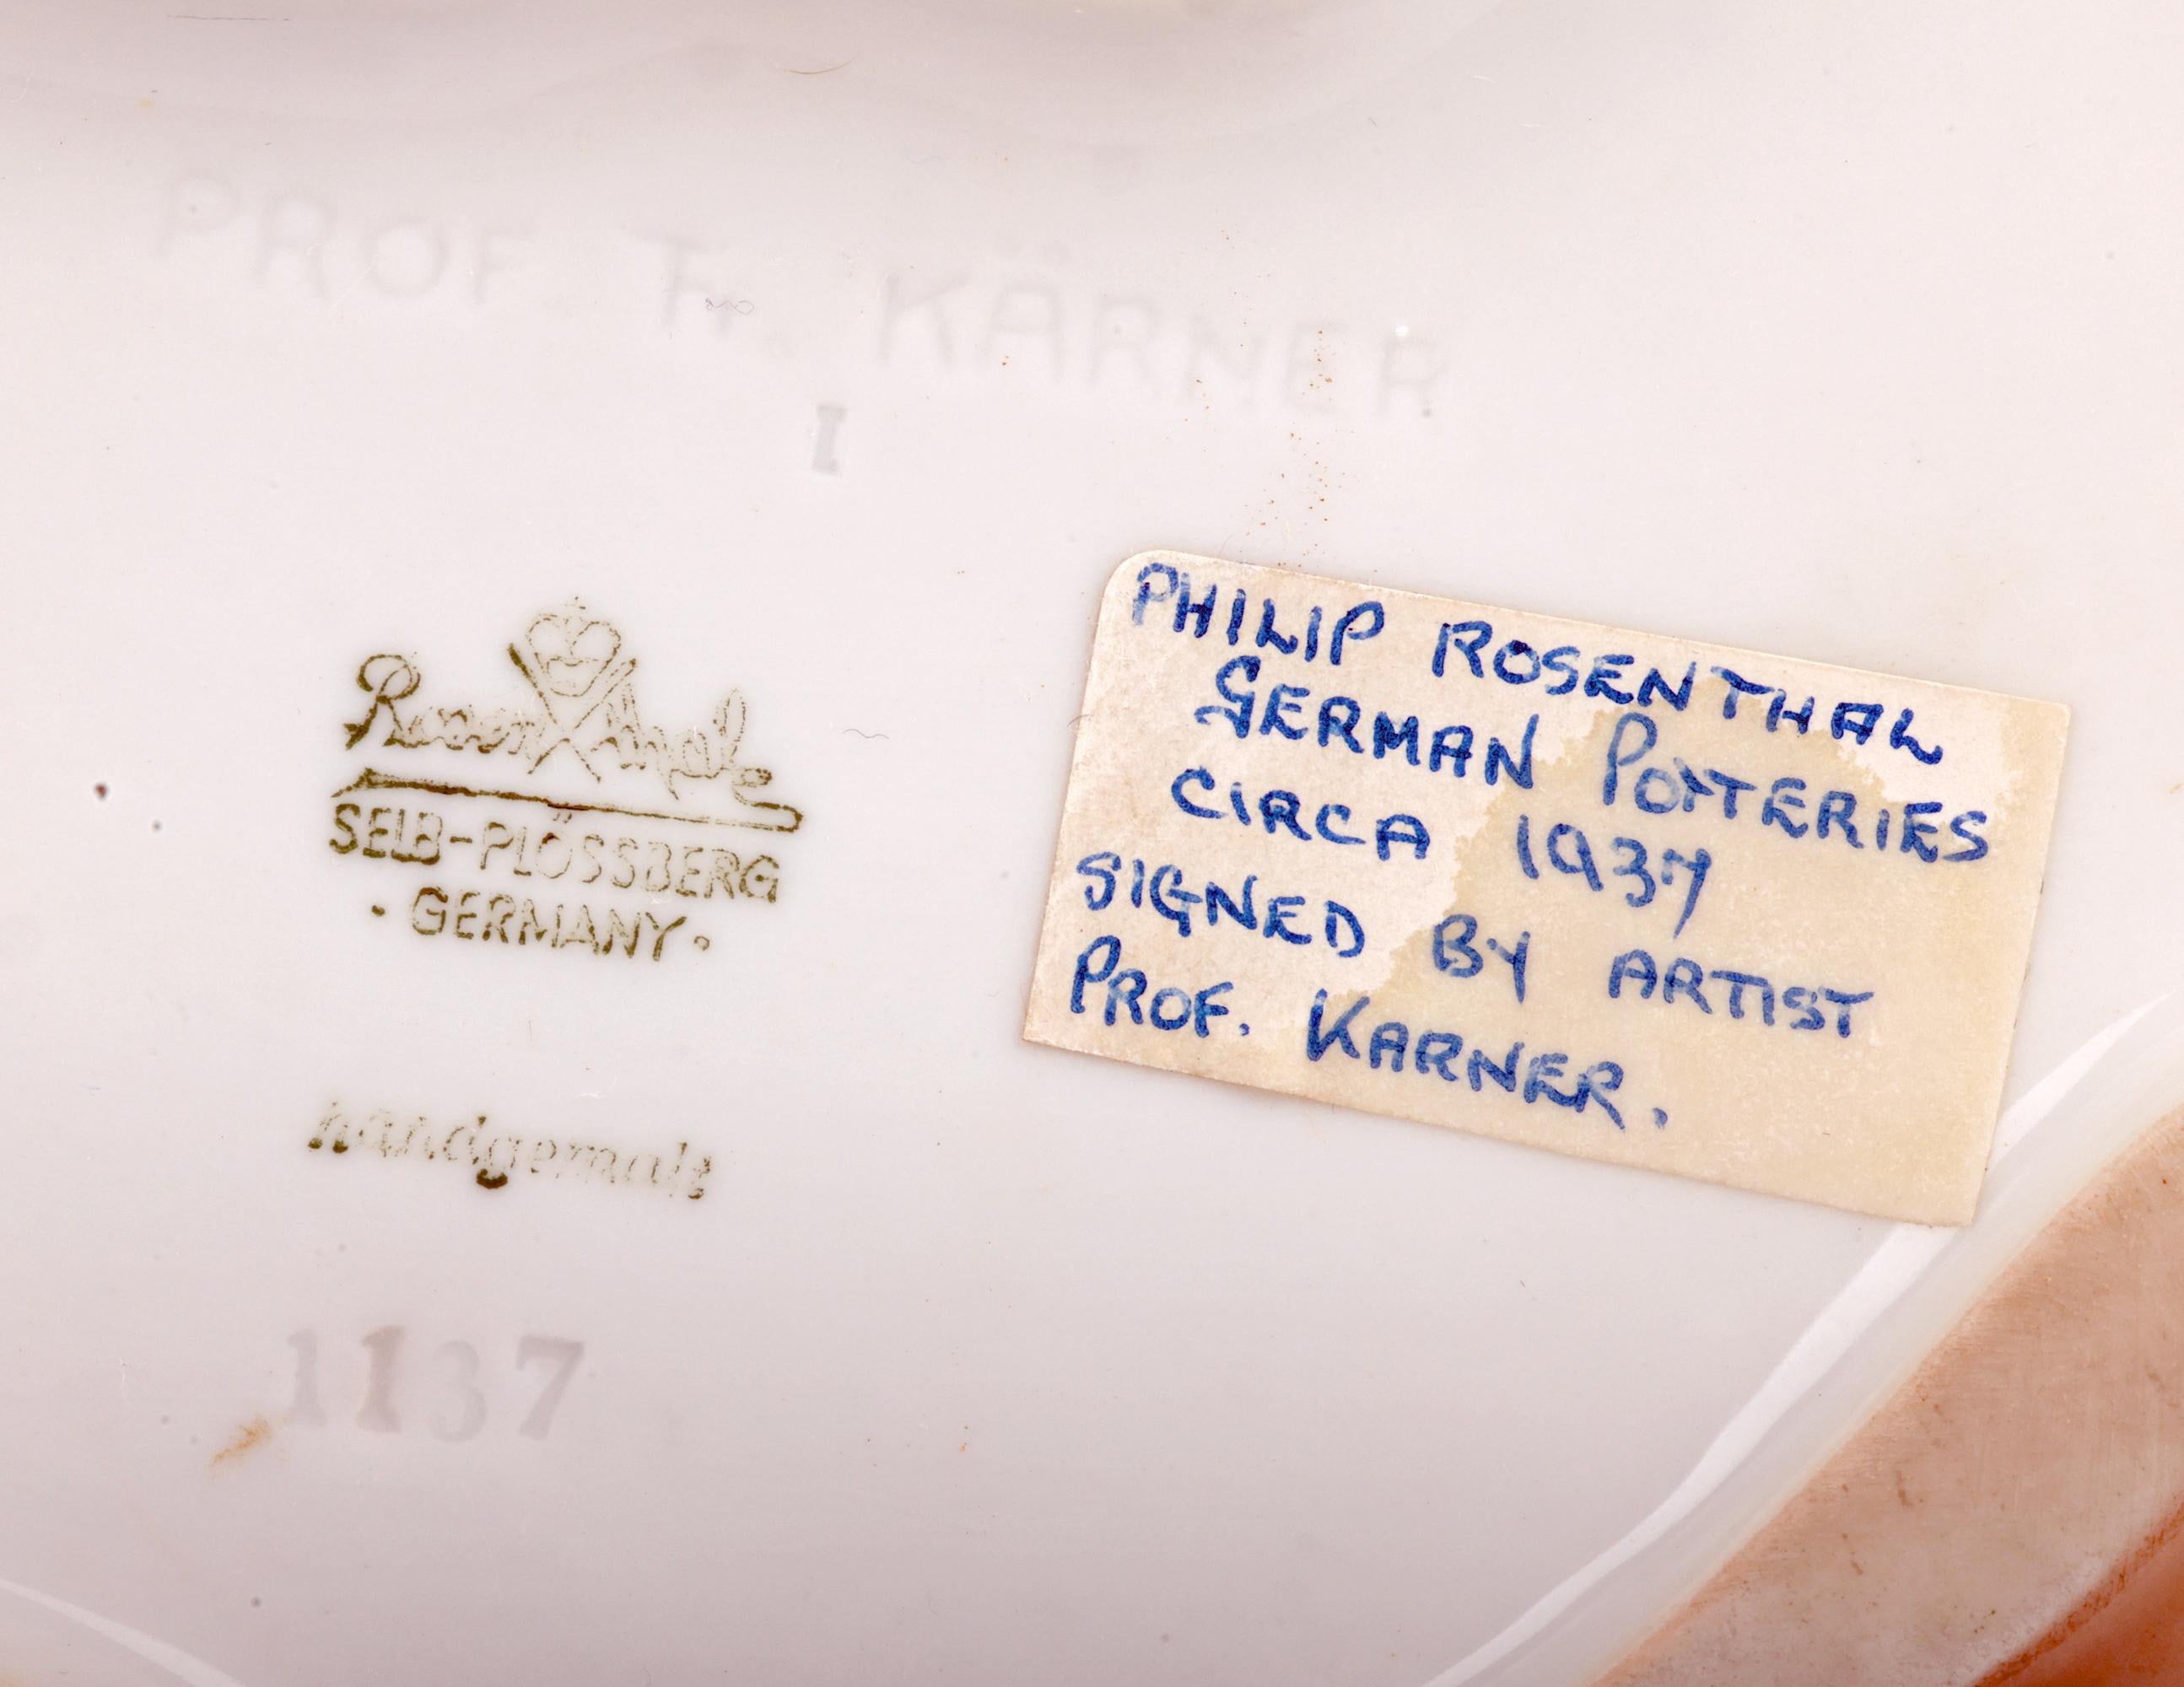 PROF. Fr. KÄRNER
I
Rosenthal
SELB-PLÖSSBERG
· GERMANY ·
handgemalt
1137
PHILIP ROSENTHAL
GERMAN POTTERIES
CIRCA 1937
SIGNED BY ARTIST
PROF. KARNER.